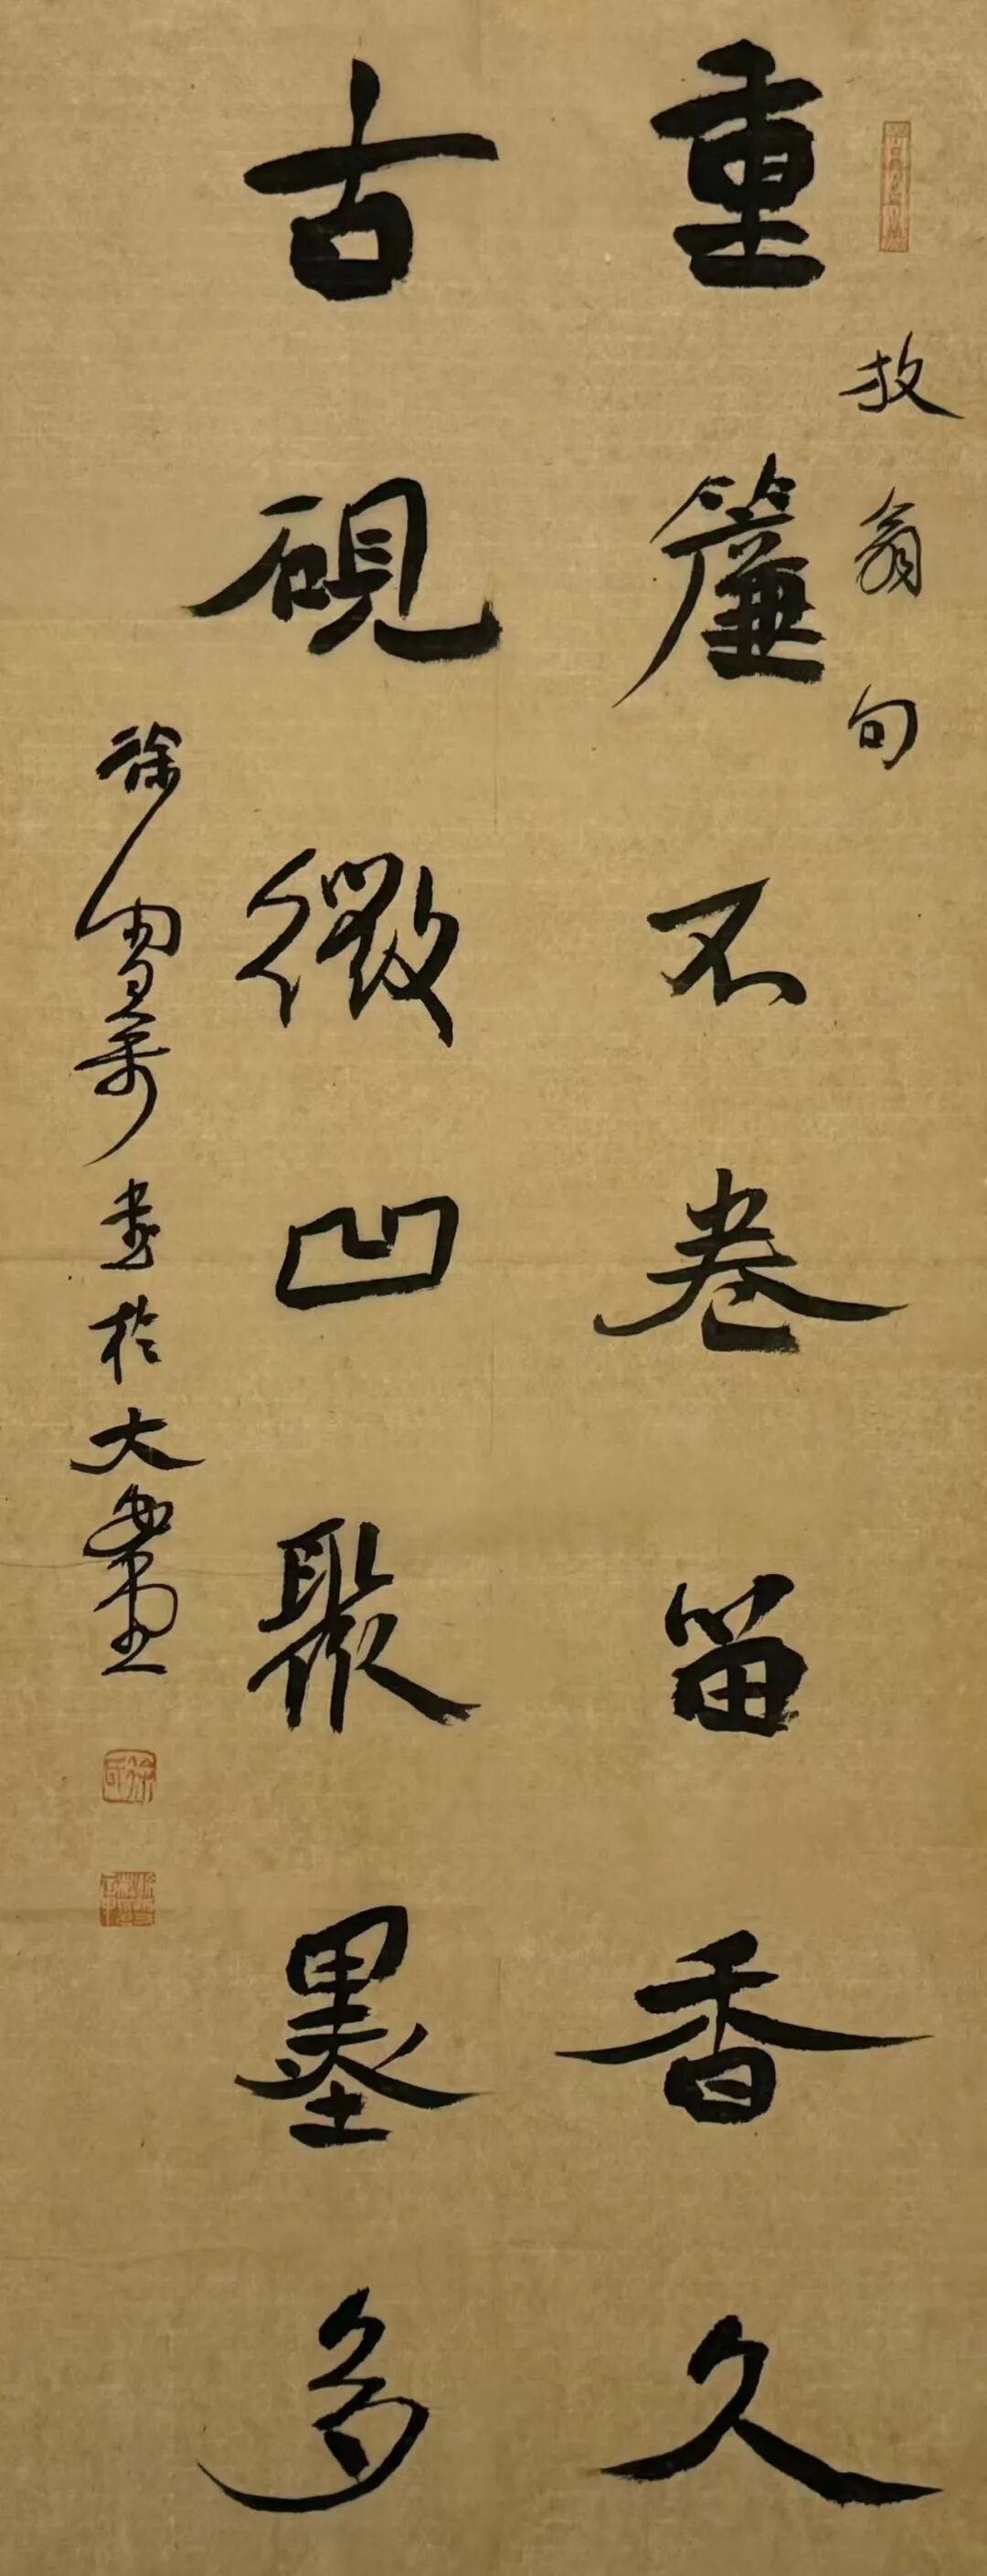 放翁句
重簾不卷留香久
古硯微凹聚墨多
徐雪書於大